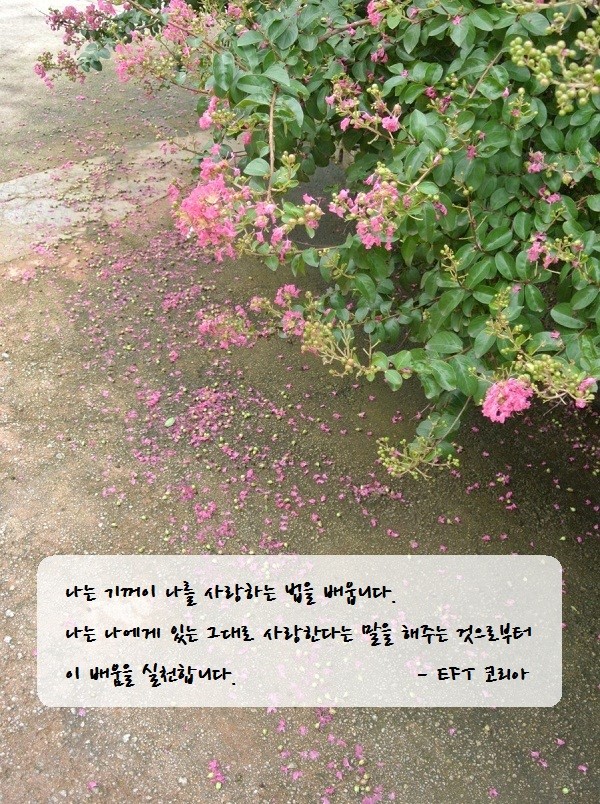 나는 기꺼이 나를 사랑하는 법을 배웁니다.
나는 나에게 있는 그대로 사랑한다는 말을 해주는 것으로부터
이 배움을 실천합니다. - EFT 코리아